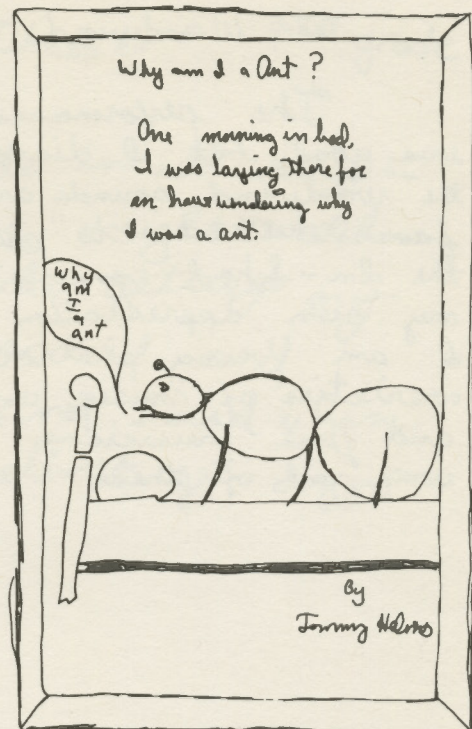 Why am I a Ant?
One morning in bed,
I was laying there for
an hour wondering why
I was a ant.
Why
am
I
a
ant
By
Tommy